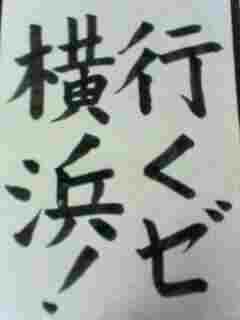 行くゼ
横浜!